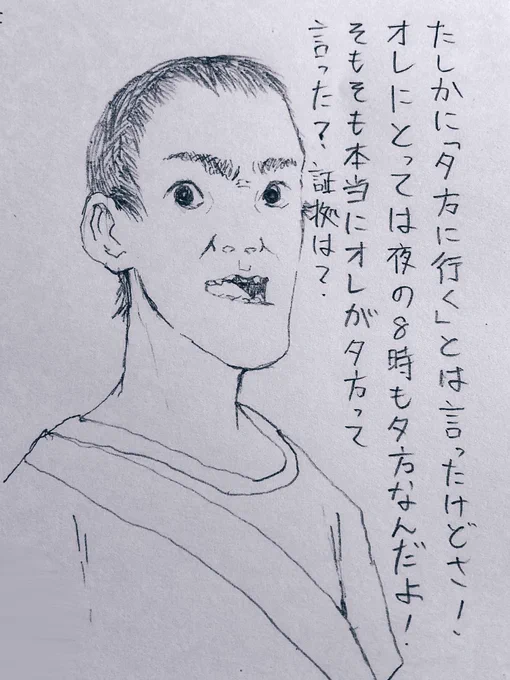 たしかに「夕方に行く」とは言ったけどさ！
オレにとっては夜の8時も夕方なんだよ！
そもそも本当にオレが夕方って
言った？証拠は？